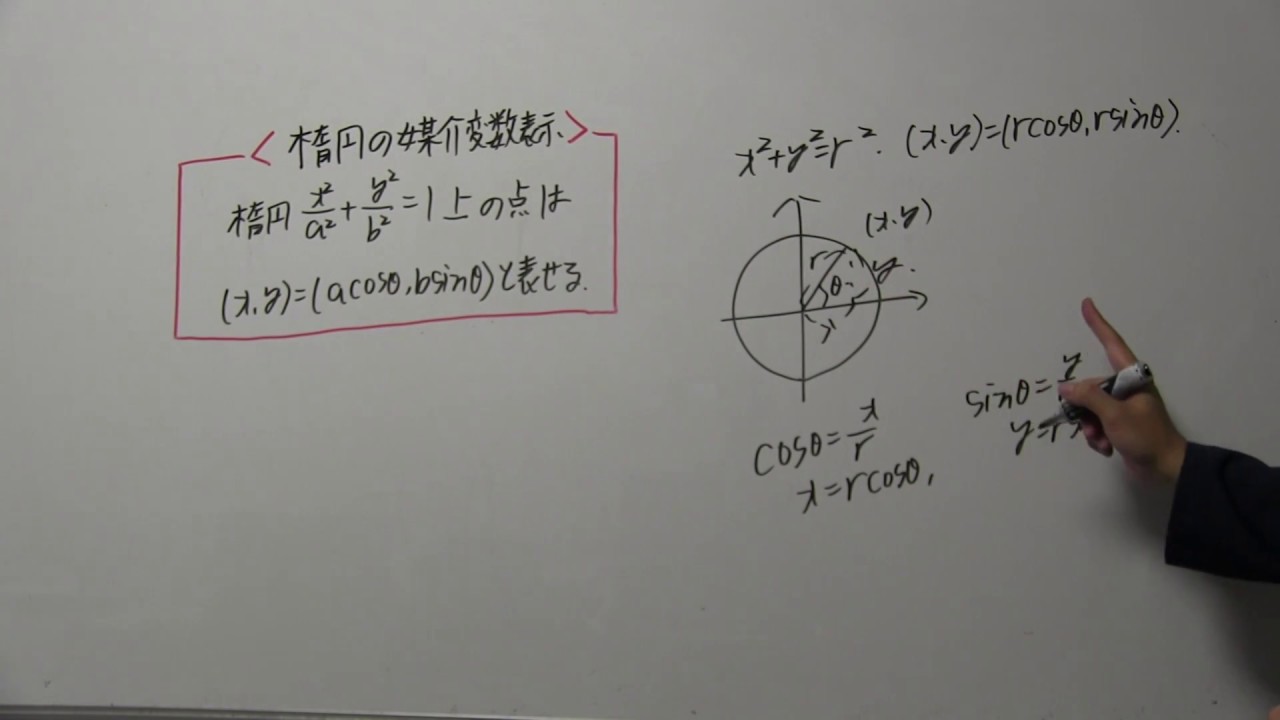 〈楕円の媒介変数表示〉
楕円 x²/a² + y²/b² = 1 上の点は
(x,y)=(acosθ,bsinθ)と表せる.
x²+y²=r². (x,y)=(rcosθ,rsinθ).
(x,y)
r
y
θ
x
cosθ=x/r
x=rcosθ,
sinθ=y
y=r